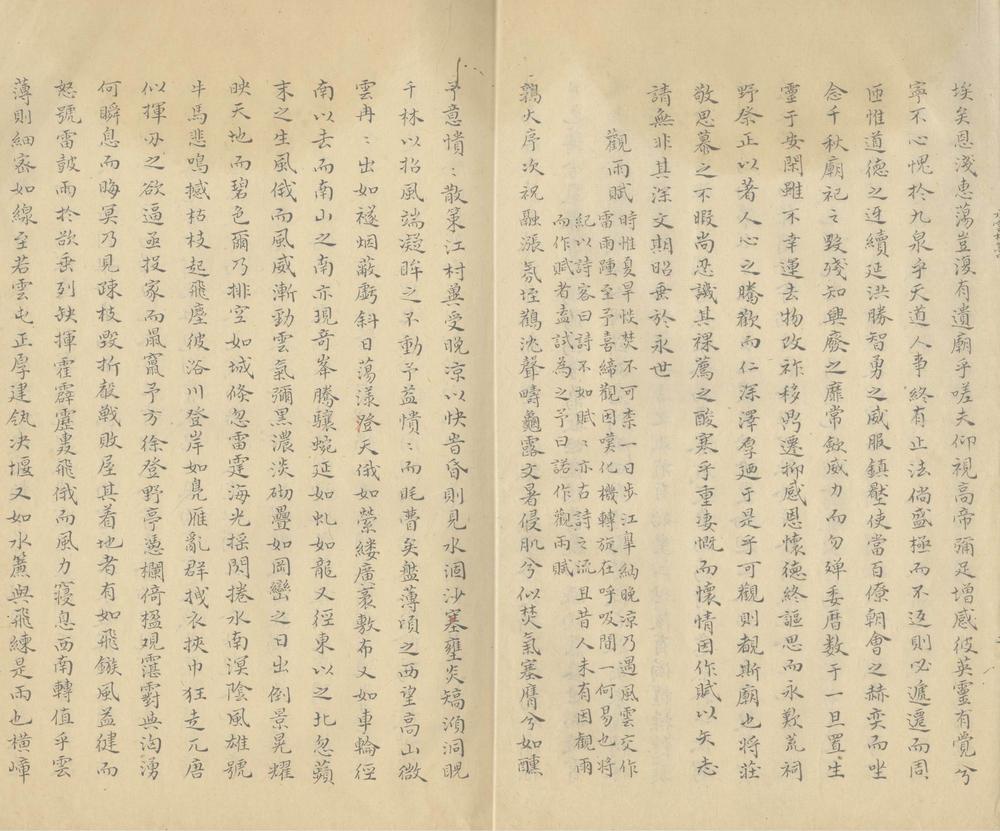 埃矣恩淺惠蕩豈復有遺廟乎嗟夫仰視高帝彌足增感彼英靈有覺兮
寧不心愧於九泉乎天道人事終有止法倘盛極而不返則必遞還而周
匝惟道德之迓續延洪勝智勇之威服鎮壓使當百僚朝會之赫奕而坐
念千秋廟祀之毀殘知興廢之靡常斂威力而勿殫委曆数于一旦置生
靈于安閑雖不幸運去物改祚移門遷抑感恩懷德終謳思而永歎荒祠
野祭正以著人心之騰歡而仁深澤厚廼于是乎可觀則覩斯廟也将莊
敬思慕之不暇尚忍譏其祼薦之酸寒乎重凄慨而懷情因作賦以矢志
請無非其深文期昭垂於永世
觀雨賦
時惟夏旱惔焚不可柰一日步江皐納晚凉乃遇風雲交作
雷雨踵至予喜締觀因嘆化機轉旋在呼吸間一何易也将
紀以詩客曰詩不如賦賦亦古詩之流且昔人未有因觀雨
而作賦者盍試為之予曰諾作觀雨賦
鶉火序次祝融漲氛垤鸛沈聲疇龜露文暑侵肌兮似焚氣塞膺兮如醺
予意憒憒散策江村爰受晚凉以快昔昏則見水涸沙塞壅炎熇澒洞晚
千林以招風端凝眸之不動予益憒憒而眊瞢矣盤薄頃之西望高山微
雲冉冉出如襚烟蔽虧斜日蕩漾澄天俄如縈縷廣袤敷布又如車輪徑
南以去而南山之南亦現奇峯騰驤蜿延如虬如龍又徑東以之北忽蘋
末之生風俄而風威漸勁雲氣彌黑濃淡砌疊如岡巒之日出倒景晃耀
映天地而碧色爾乃排空如城倏忽雷霆海光採閃捲水南溟陰風雄號
牛馬悲鳴撼枯枝起飛塵彼浴川登岸如鳧雁亂群拭衣挾巾狂走亢唐
似揮刃之欲逼亟投家而鼠竄予方徐登野亭憑欄倚楹觀靉霴與洶湧
何瞬息而晦冥乃見陳枝毀折殽戰敗屋其着地者有如飛鏃風益徤而
怒號雷皷雨於欲垂列缺揮霍霹靂轟飛俄而風力寢息西南轉值乎雲
薄則細密如線至若雲屯正厚建瓴决堰又如水簾與飛練是雨也橫嶂